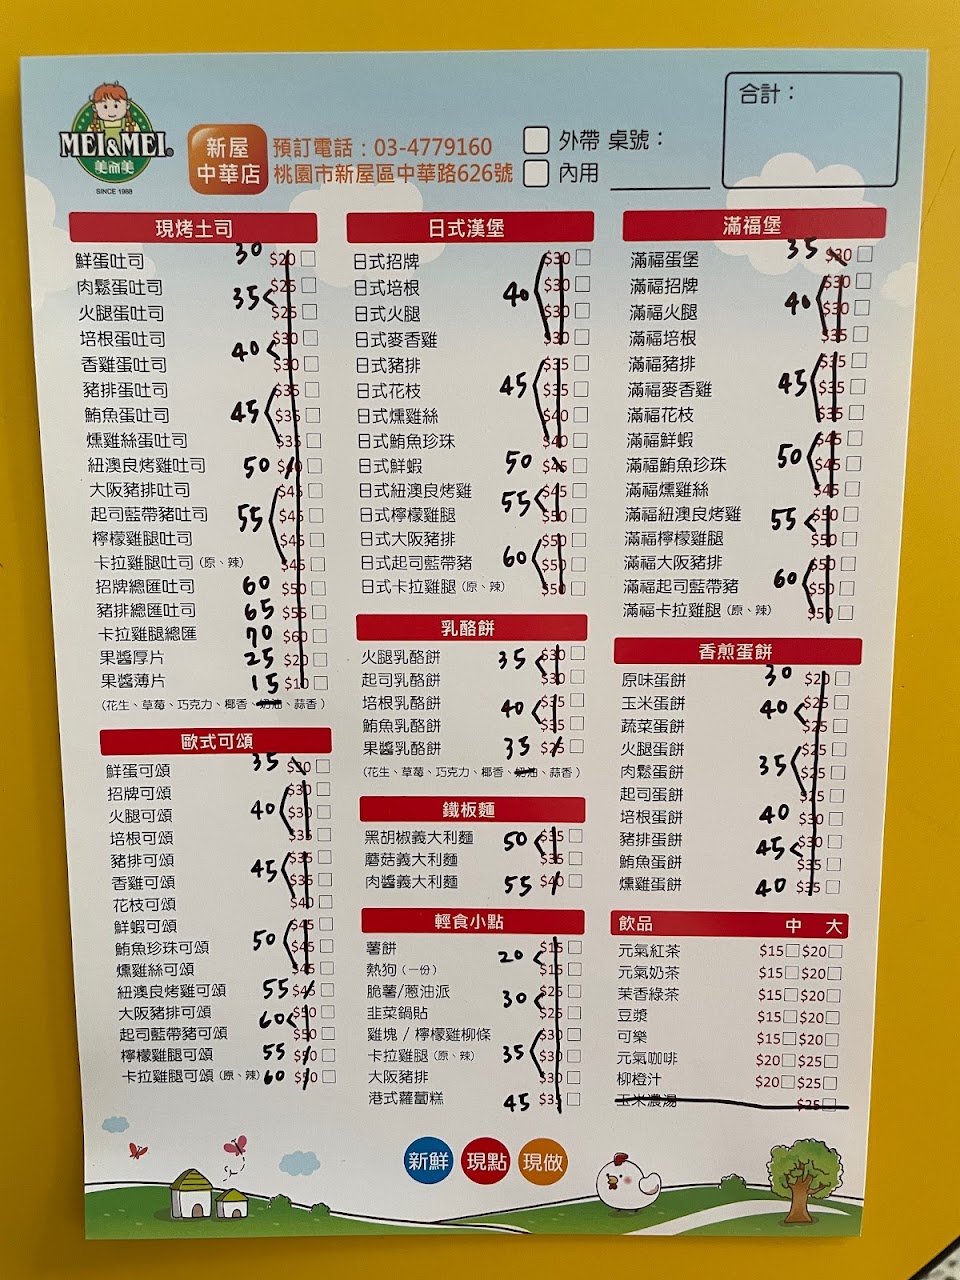 MEI&MEI®
美而美
SINCE 1988
新屋
中華店
預訂電話：03-4779160
桃園市新屋區中華路626號
外帶 桌號：
內用
合計：
現烤土司
鮮蛋吐司 30 $20
肉鬆蛋吐司 $25
35
火腿蛋吐司 $25
培根蛋吐司 $30
40
香雞蛋吐司 $30
豬排蛋吐司 $35
鮪魚蛋吐司 45 $35
燻雞絲蛋吐司 $35
紐澳良烤雞吐司 50 $40
大阪豬排吐司 $45
起司藍帶豬吐司 55 $45
檸檬雞腿吐司 $45
卡拉雞腿吐司（原、辣） $45
招牌總匯吐司 60 $50
豬排總匯吐司 65 $55
卡拉雞腿總匯 70 $60
果醬厚片 25 $20
果醬薄片 15 $10
（花生、草莓、巧克力、椰香、奶油、蒜香）
歐式可頌
鮮蛋可頌 35 $30
招牌可頌 $30
火腿可頌 40 $30
培根可頌 $35
豬排可頌 $35
香雞可頌 45 $35
花枝可頌 $40
鮮蝦可頌 $45
鮪魚珍珠可頌 50 $45
燻雞絲可頌 $45
紐澳良烤雞可頌 55 $45
大阪豬排可頌 $50
60
起司藍帶豬可頌 $50
檸檬雞腿可頌 55 $50
卡拉雞腿可頌（原、辣） 60 $50
日式漢堡
日式招牌 $30
日式培根 $30
40
日式火腿 $30
日式麥香雞 $30
日式豬排 $35
日式花枝 45 $35
日式燻雞絲 $40
日式鮪魚珍珠 $40
日式鮮蝦 50 $45
日式紐澳良烤雞 $45
55
日式檸檬雞腿 $50
日式大阪豬排 $50
日式起司藍帶豬 60 $50
日式卡拉雞腿（原、辣） $50
乳酪餅
火腿乳酪餅 35 $30
起司乳酪餅 $30
培根乳酪餅 $35
40
鮪魚乳酪餅 $35
果醬乳酪餅 35 $25
（花生、草莓、巧克力、椰香、奶油、蒜香）
鐵板麵
黑胡椒義大利麵 50 $35
蘑菇義大利麵 $35
肉醬義大利麵 55 $40
輕食小點
薯餅 $15
20
熱狗（一份） $15
脆薯/蔥油派 $25
30
韭菜鍋貼 $25
雞塊 / 檸檬雞柳條 $30
卡拉雞腿（原、辣） 35 $30
大阪豬排 $30
港式蘿蔔糕 45 $35
滿福堡
滿福蛋堡 35 $30
滿福招牌 $30
滿福火腿 40 $30
滿福培根 $35
滿福豬排 $35
滿福麥香雞 45 $35
滿福花枝 $35
滿福鮮蝦 $45
滿福鮪魚珍珠 50 $45
滿福燻雞絲 $45
滿福紐澳良烤雞 55 $50
滿福檸檬雞腿 $50
滿福大阪豬排 $50
滿福起司藍帶豬 60 $50
滿福卡拉雞腿（原、辣） $50
香煎蛋餅
原味蛋餅 30 $20
玉米蛋餅 40 $25
蔬菜蛋餅 $25
火腿蛋餅 $25
肉鬆蛋餅 35 $25
起司蛋餅 $25
培根蛋餅 40 $30
豬排蛋餅 45 $30
鮪魚蛋餅 $35
燻雞蛋餅 40 $35
飲品 中 大
元氣紅茶 $15 $20
元氣奶茶 $15 $20
茉香綠茶 $15 $20
豆漿 $15 $20
可樂 $15 $20
元氣咖啡 $20 $25
柳橙汁 $20 $25
玉米濃湯 $25
新鮮 現點 現做